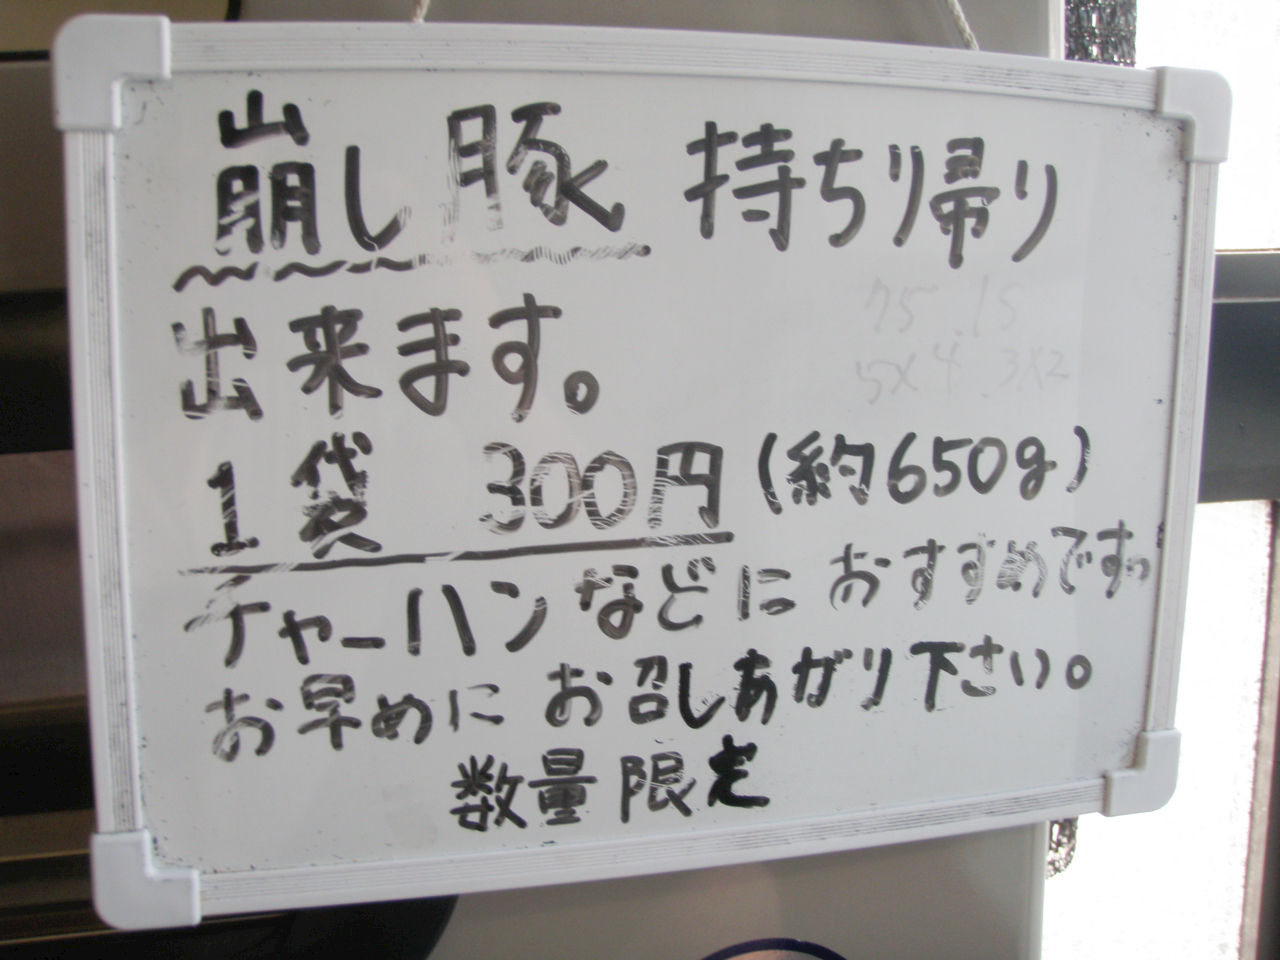 崩し豚 持ち帰り
出来ます。
75 15
5×4 3×2
1袋 300円(約650g)
チャーハンなどにおすすめです。
お早めにお召しあがり下さい。
数量限定